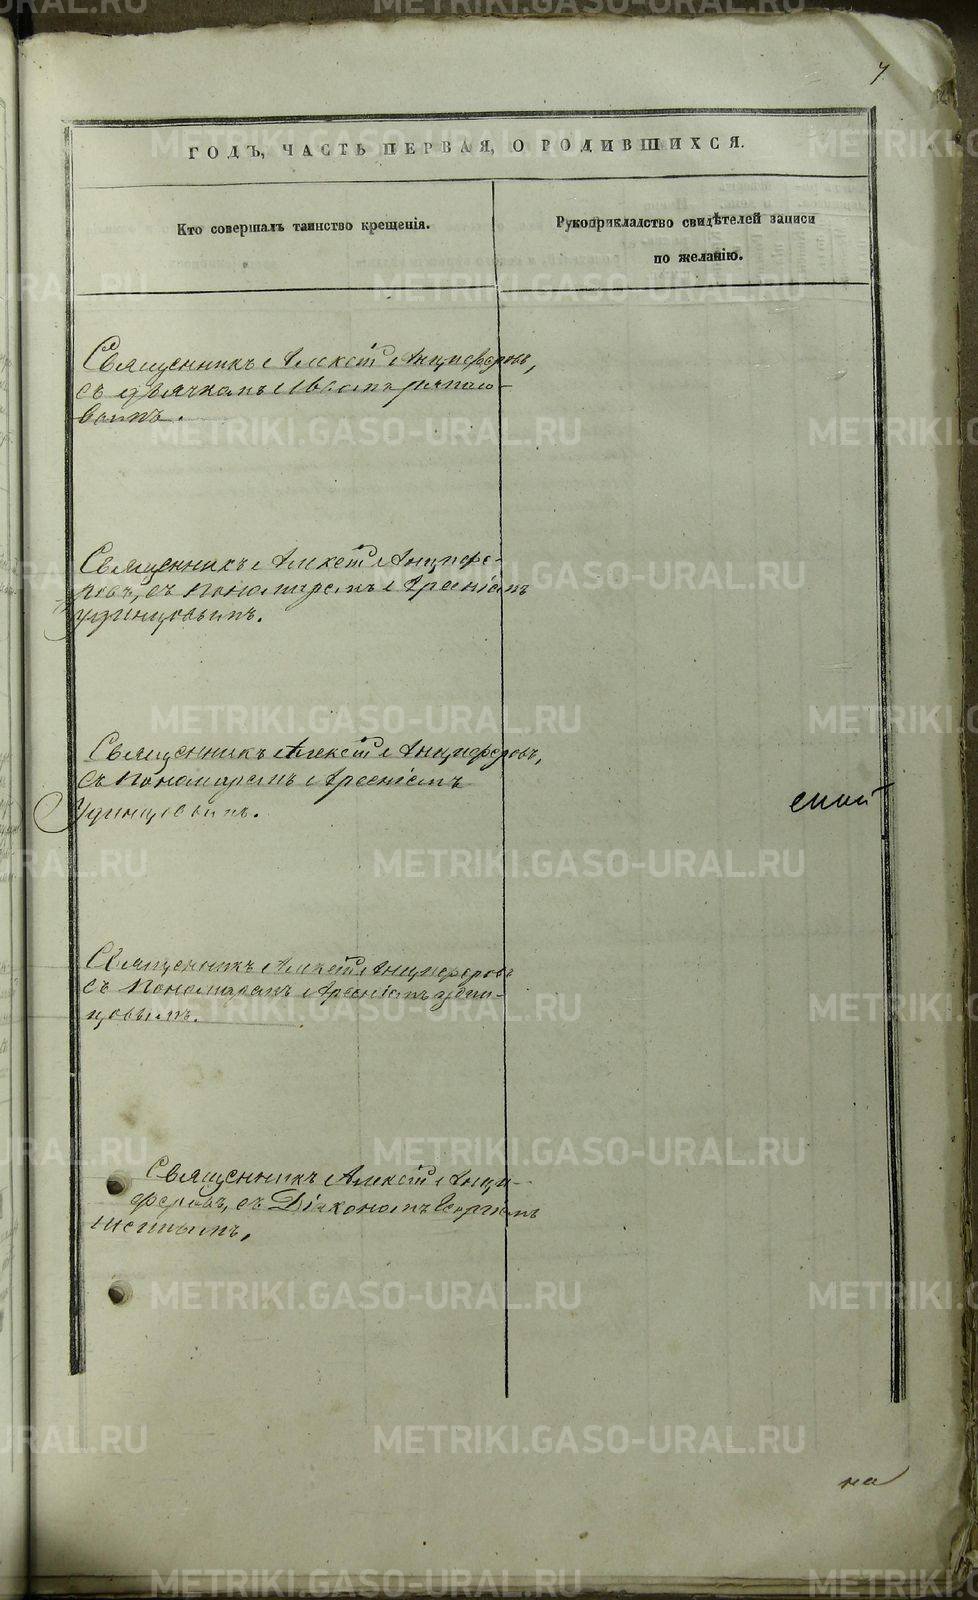 7
ГОДЪ, ЧАСТЬ ПЕРВАЯ, О РОДИВШИХСЯ.
Кто совершалъ таинство крещенія.
Рукоприкладство свидѣтелей записи
по желанію.
Священникъ Алексѣй Анциферовъ,
съ дьячкомъ
вымъ.
Священникъ Алексѣй Анцифе-
ровъ, съ Пономаремъ Арсеніемъ
Удинцовымъ.
Священникъ Алексѣй Анциферовъ,
съ Пономаремъ Арсеніемъ
Удинцовымъ.
Священникъ Алексѣй Анциферовъ
съ Пономаремъ Арсеніемъ Удин-
цовымъ.
Священникъ Алексѣй Анци-
феровъ, съ Діякономъ Георгіемъ
на
METRIKI.GASO-URAL.RU